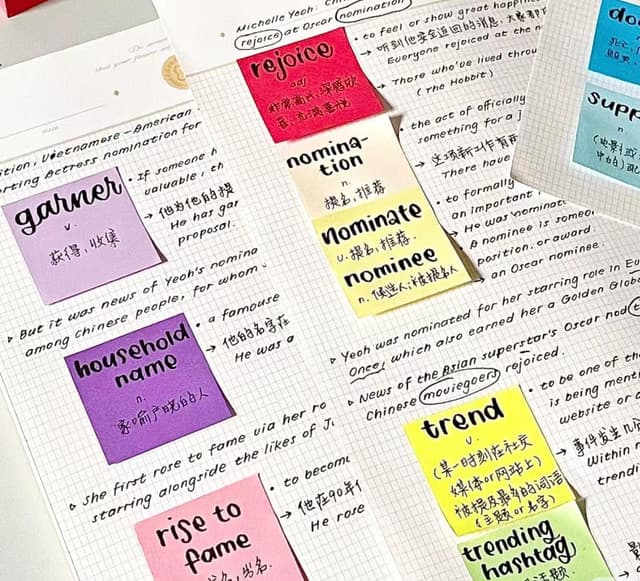 Michelle Yeoh: Chi
rejoice at Oscar nomination
rejoice
adj
非常高兴,深感欣
喜,充满喜悦
to feel or show great happin
→ 听到他安全返回的消息,大家都
Everyone rejoiced at the n
→ Those who've lived throu
(The Hobbit)
nomina-
tion
n.
提名,推荐
the act of officially
something for a j
→ 这项新工作有两
There have
nominate
v.提名,推荐
nominee
n.候选人;被提名人
to formally
an important
→ He was nominate
A nominee is someo
position, or award.
an Oscar nominee.
ition, Vietnamese-American
rting Actress nomination for
garner
v.
获得,收集
If someone h
valuable, th
→ 他为他的提
He has gar
proposal.
▷ But it was news of Yeoh's nomina
among Chinese people, for whom
household
name
n.
家喻户晓的人
a famouse
→ 他的名字在
He was a
▷ She first rose to fame via her ro
starring alongside the likes of J
rise to
fame
成名,出名.
to becom
→ 他在90年代
He rose
▷ Yeoh was nominated for her starring role in Eu
Once, which also earned her a Golden Globe
▷ News of the Asian superstar's Oscar nod
Chinese moviegoers rejoiced.
trend
v.
(某一时刻在社交
媒体or网站上)
被提及最多的词语
(主题or名字)
to be one of th
is being mentio
website or a
→ 事件发生几
Within
trendi
trending
hashtag
话题
do
supp
n
(电影或
中的)配